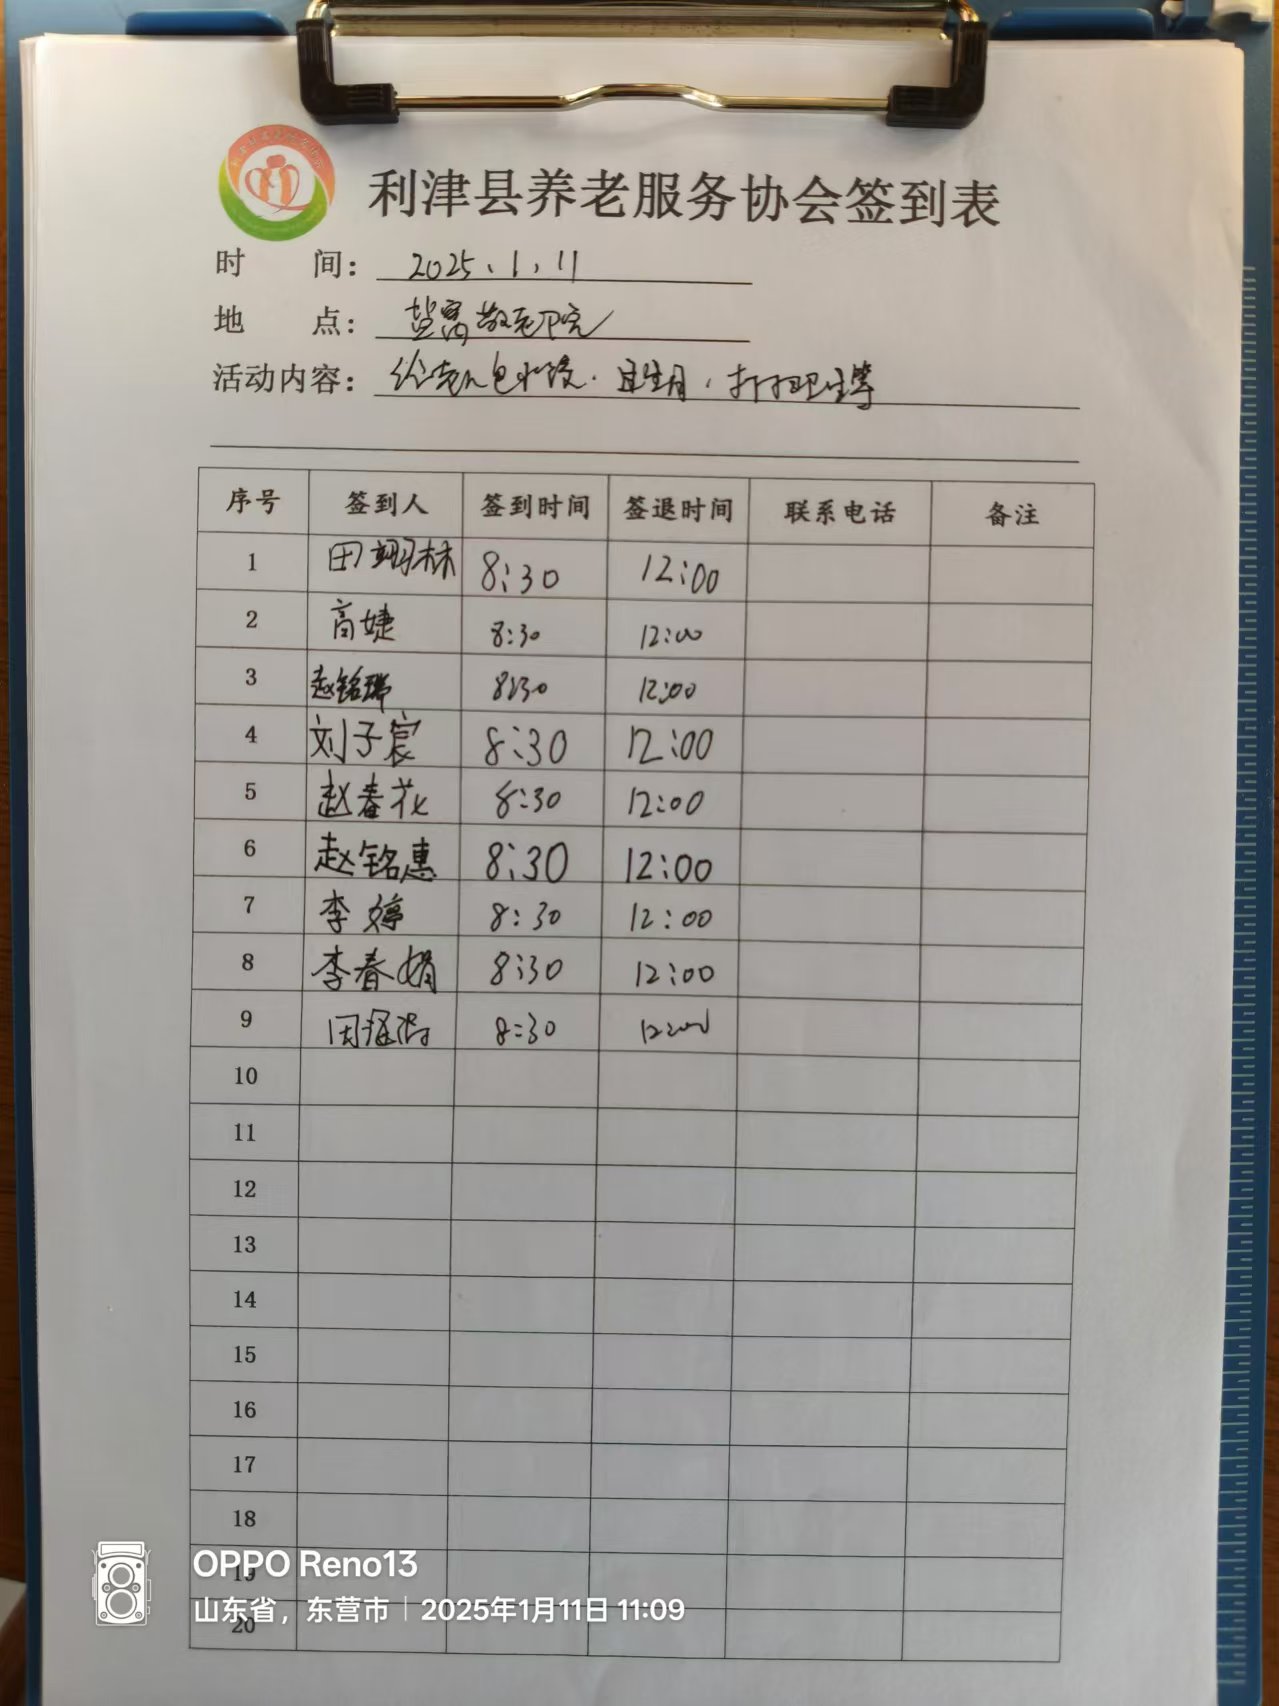 利津县养老服务协会签到表
时 间： 2025、1、11
地 点： 盐窝敬老院
活动内容： 给老人包水饺、过生日、打扫卫生等
序号 签到人 签到时间 签退时间 联系电话 备注
1 田翊林 8:30 12:00
2 高婕 8:30 12:00
3 赵铭瑞 8:30 12:00
4 刘子宸 8:30 12:00
5 赵春花 8:30 12:00
6 赵铭惠 8:30 12:00
7 李婷 8:30 12:00
8 李春娟 8:30 12:00
9 8:30 12:00
10
11
12
13
14
15
16
17
18
19
20
OPPO Reno13
山东省，东营市 | 2025年1月11日 11:09